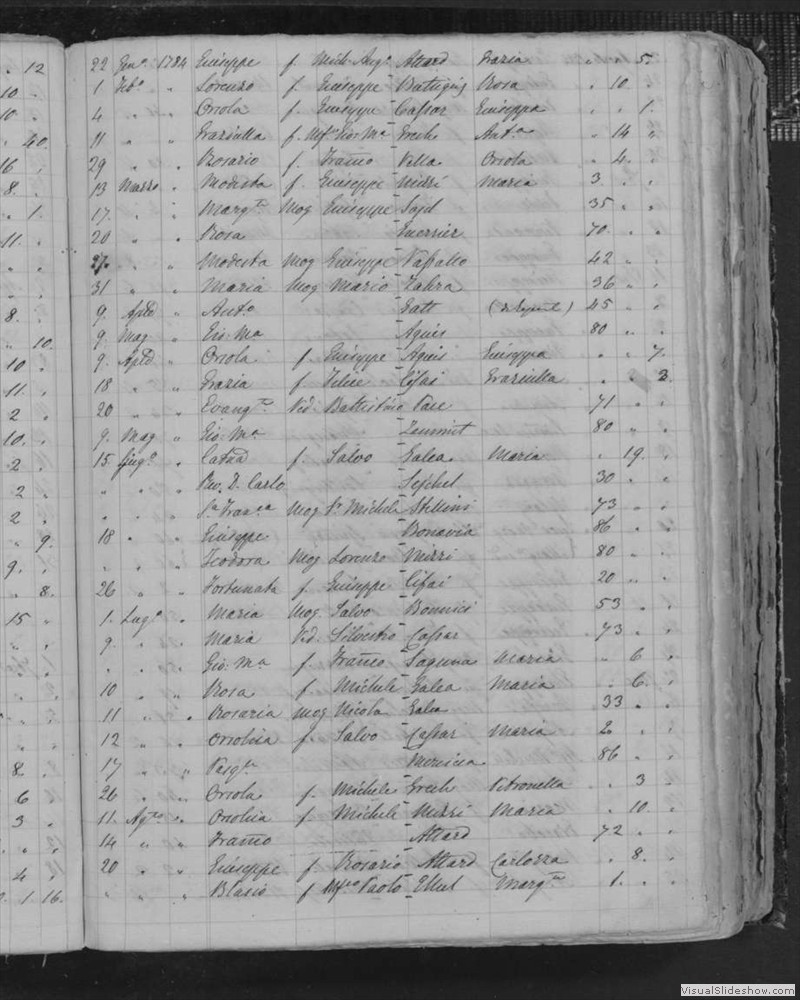 12
10
10
40.
16
8.
1.
11.
8.
10.
10
11.
2
10.
2
2
2
9.
9.
8.
15
8.
6
3
4
1 16.
22 Gen.o 1784 Giuseppe f. Mich. Ang.o Attard Grazia " " 5.
1 Feb.o " Lorenzo f. Giuseppe Rosa " 10 "
4 " " Orsola f. Giuseppe Cassar Giuseppa " " 1.
11 " " Graziulla f. Grech Ant.a " 14 "
29 " " Rosario f. Franco Vella Orsola " 4. "
13 Marzo " Modesta f. Giuseppe Mizzi Maria 3. " "
17. " " Marg.ta Mog Giuseppe Sajd 35 " "
20 " " Rosa 70. " "
27. " " Modesta Mog Giuseppe Vassallo 42 " "
31 " " Maria Mog Mario Zahra 36 " "
9. Aple " Ant.o Gatt 45 " "
9. Mag " Gio: M.a Agius 80 " "
9. Aple " Orsola f. Giuseppe Agius Giuseppa " " 7.
18 " " Grazia f. Felice Cifai Graziulla " " 3.
20 " " Evang.ta Vid: Battistino Pace 71 " "
9. Mag " Gio: M.a Zammit 80 " "
15. Giug.o " Catna f. Salvo Galea Maria " 19. "
" " " Rev. D. Carlo Sejchel 30 " "
" " " Mog Michele Stellini 73 " "
18 " " Giuseppe Bonavia 86 " "
" " " Teodora Mog Lorenzo Mizzi 80 " "
26 " " Fortunata f. Giuseppe Cifai 20 " "
1. Lug.o " Maria Mog. Salvo Bonnici 53 " "
9. " " Maria Vid. Silvestro Cassar 73 " "
" " " Gio: M.a f. Franco Laguna Maria " 6 "
10 " " Rosa f. Michele Galea Maria " 6. "
11 " " Rosaria Mog Nicola Galea 33 " "
12 " " f. Salvo Cassar Maria 2 " "
17 " " Pasq.le Mercieca 86 " "
26 " " Orsola f. Michele Grech Petronella " 3 "
11. Ag.to " f. Michele Mizzi Maria " 10. "
14 " " Franco Attard 72 " "
20 " " Giuseppe f Rosario Attard " 8. "
" " " Blasio f Paolo Ellul Marg.ta 1. " "
VisualSlideshow.com